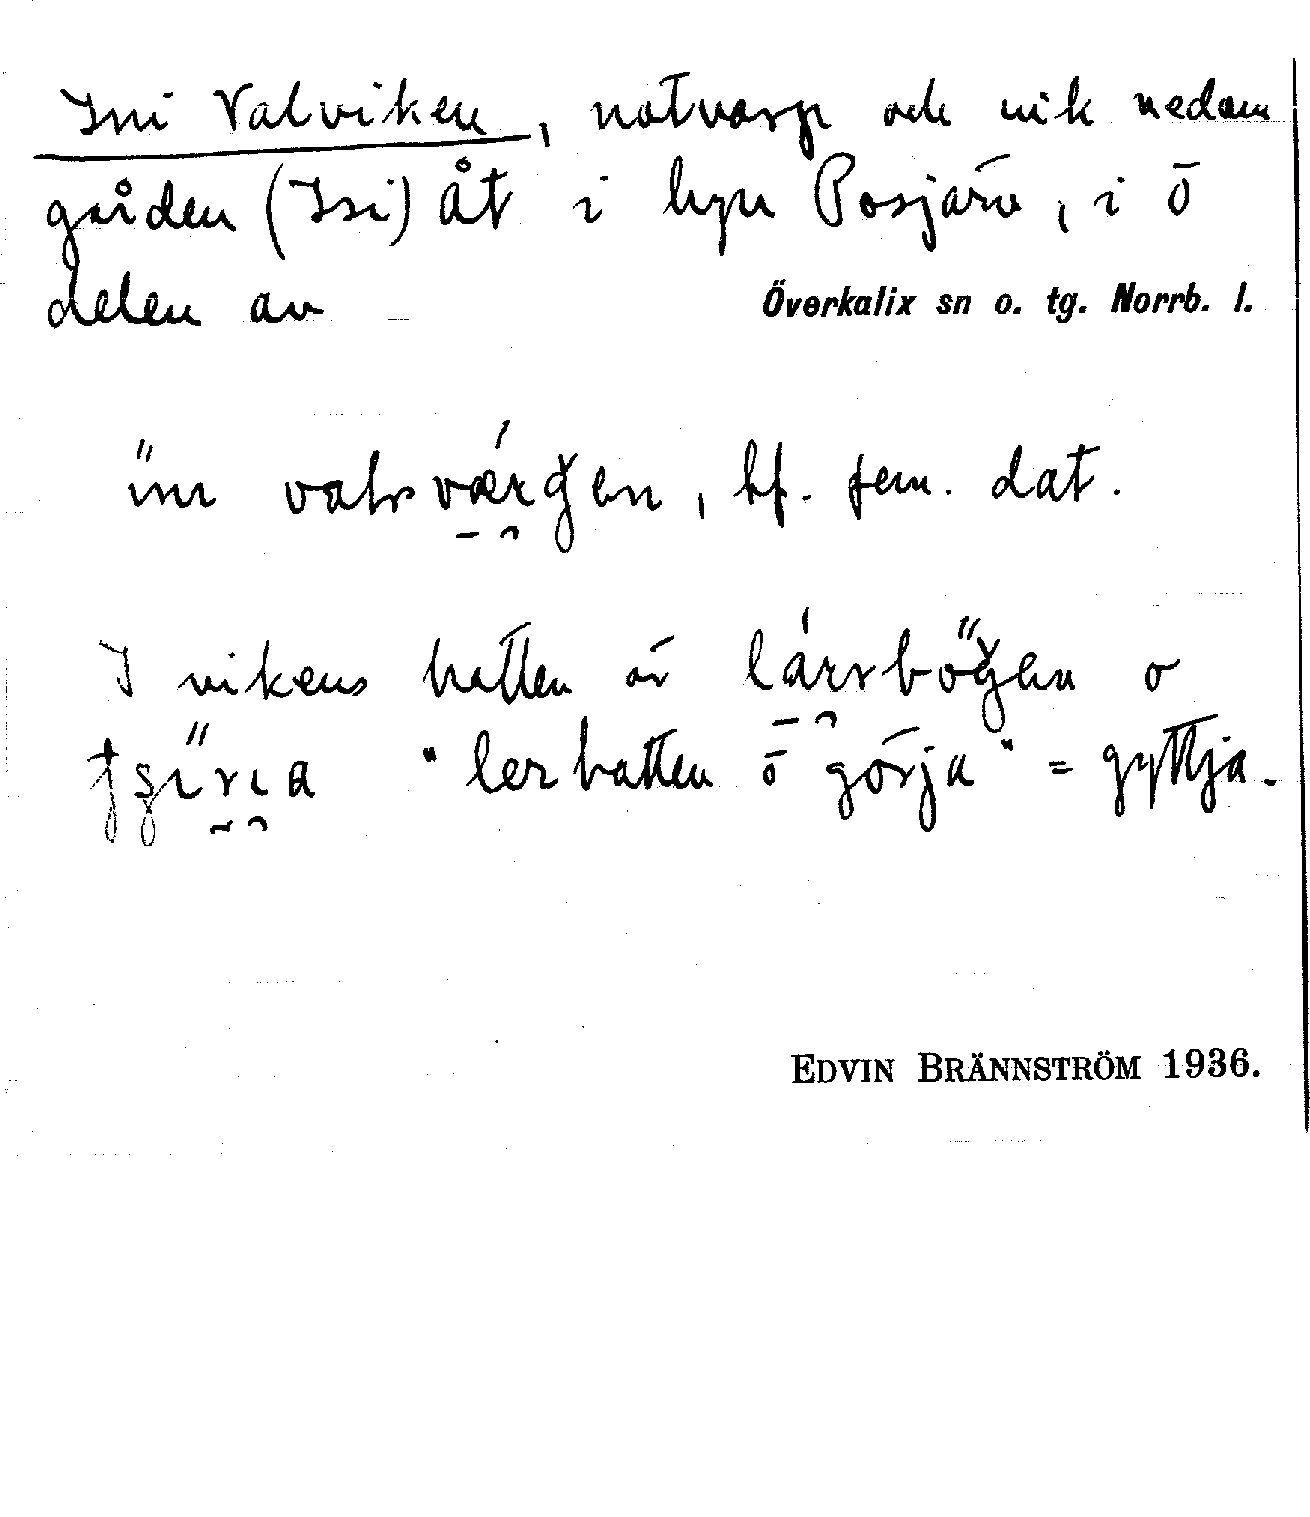 Ini Valviken, notvarp och vik nedom
gården (Isi) åt i byn Posjärv, i ö
delen av Överkalix sn o. tg. Norrb. l.
bf. fem. dat.
I vikens botten är o
"lerbotten ö görja" = gyttja.
EDVIN BRÄNNSTRÖM 1936.